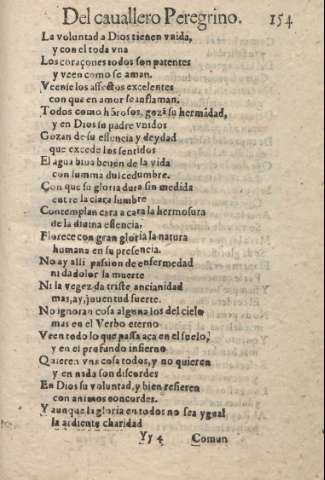 Del cauallero Peregrino. 154
La voluntad a Dios tienen vnida,
y con el toda vna
Los coraçones todos son patentes
y veen como se aman.
Veense los affectos excelentes
con que en amor se inflaman.
Todos como hermosos, gozã su hermãdad,
y en Dios su padre vnidos
Gozan de su essencia y deydad
que excede los sentidos
El agua biua beuen de la vida
con summa dulcedumbre.
Con que su gloria dura sin medida
entre la clara lumbre
Contemplan cara a cara la hermosura
de la diuina essencia,
Florece con gran gloria la natura
humana en su presencia.
No ay alli passion de enfermedad
ni da dolor la muerte
Ni la vegez da triste ancianidad
mas, ay, jouentud fuerte.
No ignoran cosa alguna los del cielo
mas en el Verbo eterno
Veen todo lo que passa aca en el suelo,
y en el profundo infierno
Quieren vna cosa todos, y no quieren
y en nada son discordes
En Dios su voluntad, y bien refieren
con animos concordes.
Y aunque la gloria en todos no sea ygual
la ardiente charidad
Yy 4 Comun